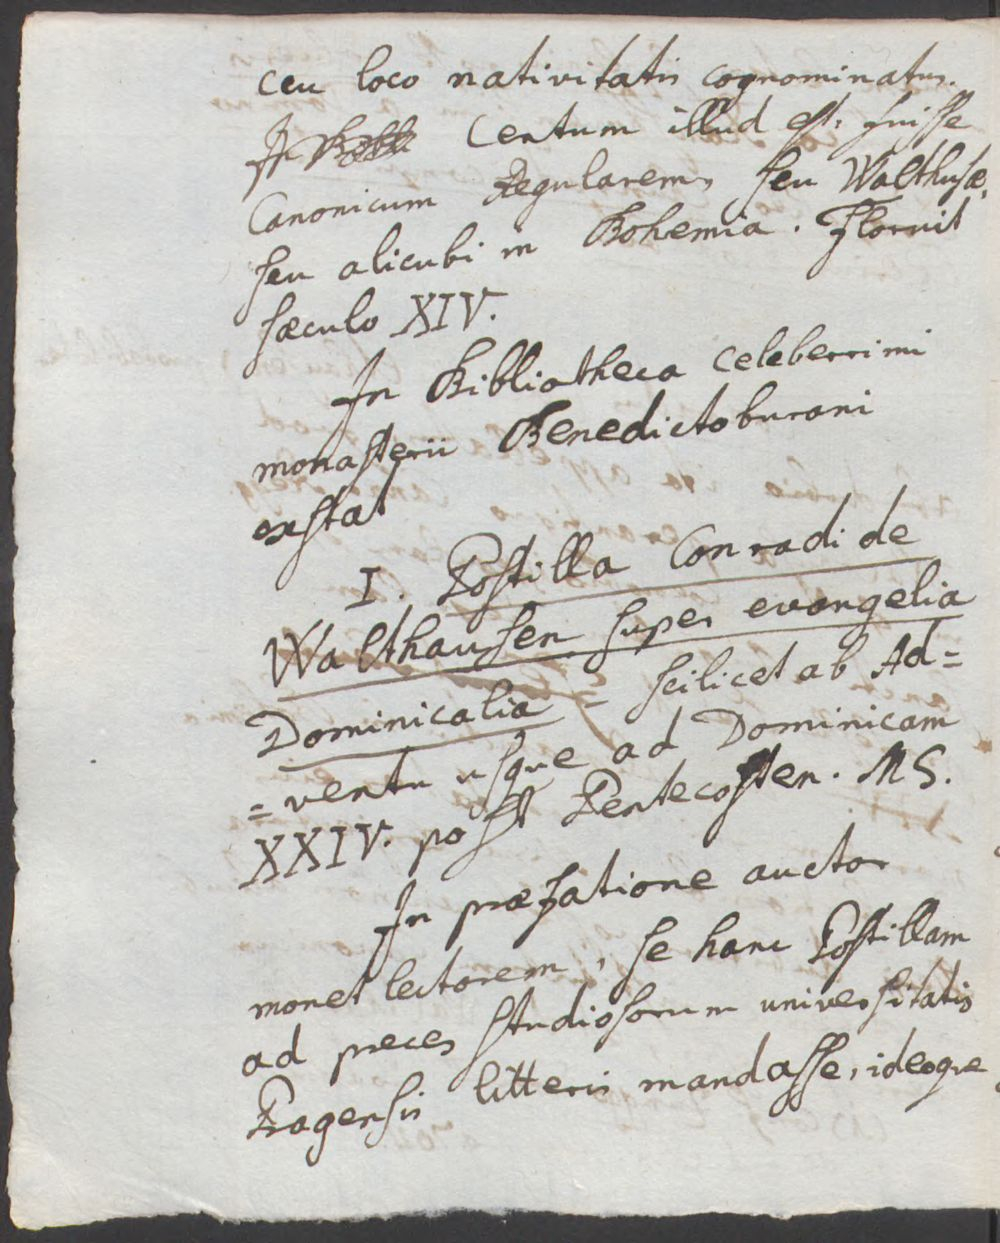 ceu loco nativitatis cognominatus.
In Certum illud est, fuisse
Canonicum Regularem, seu Walthusæ,
seu alicubi in Bohemia. Floruit
sæculo XIV.
In Bibliotheca celeberrimi
monasterii Benedictoburani
exstat
I. Postilla Conradi de
Walthausen super evangelia
Dominicalia = scilicet ab Ad=
=ventu usque ad Dominicam
XXIV. post Pentecosten. MS.
In præfatione auctor
monet lectorem, se hanc Postillam
ad preces studiosorum universitatis
Pragensis litteris mandasse, ideoque